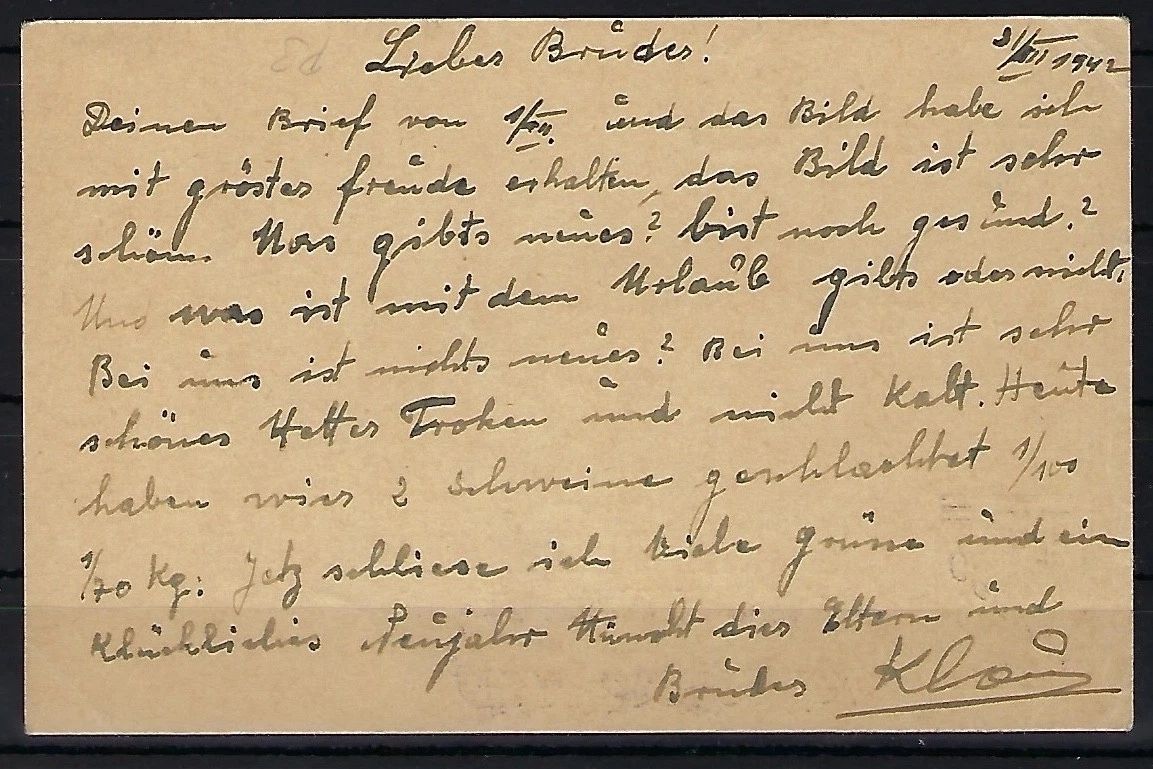 Lieber Bruder!
/XII 1942
Deinen Brief von 1/XII. und das Bild habe ich
mit gröster freude erhalten, das Bild ist sehr
schön. Was gibts neues? bist noch gesund?
Und was ist mit dem Urlaub gibts oder nicht.
Bei uns ist nichts neues? Bei uns ist sehr
schönes Wetter Troken und nicht Kalt. Heute
haben wier 2 Schweine geschlachtet 1/100
1/70 Kg: Jetz schliese ich Viele grüse und ein
Klückliches Neujahr Wünscht dier Eltern und
Bruder Klaus